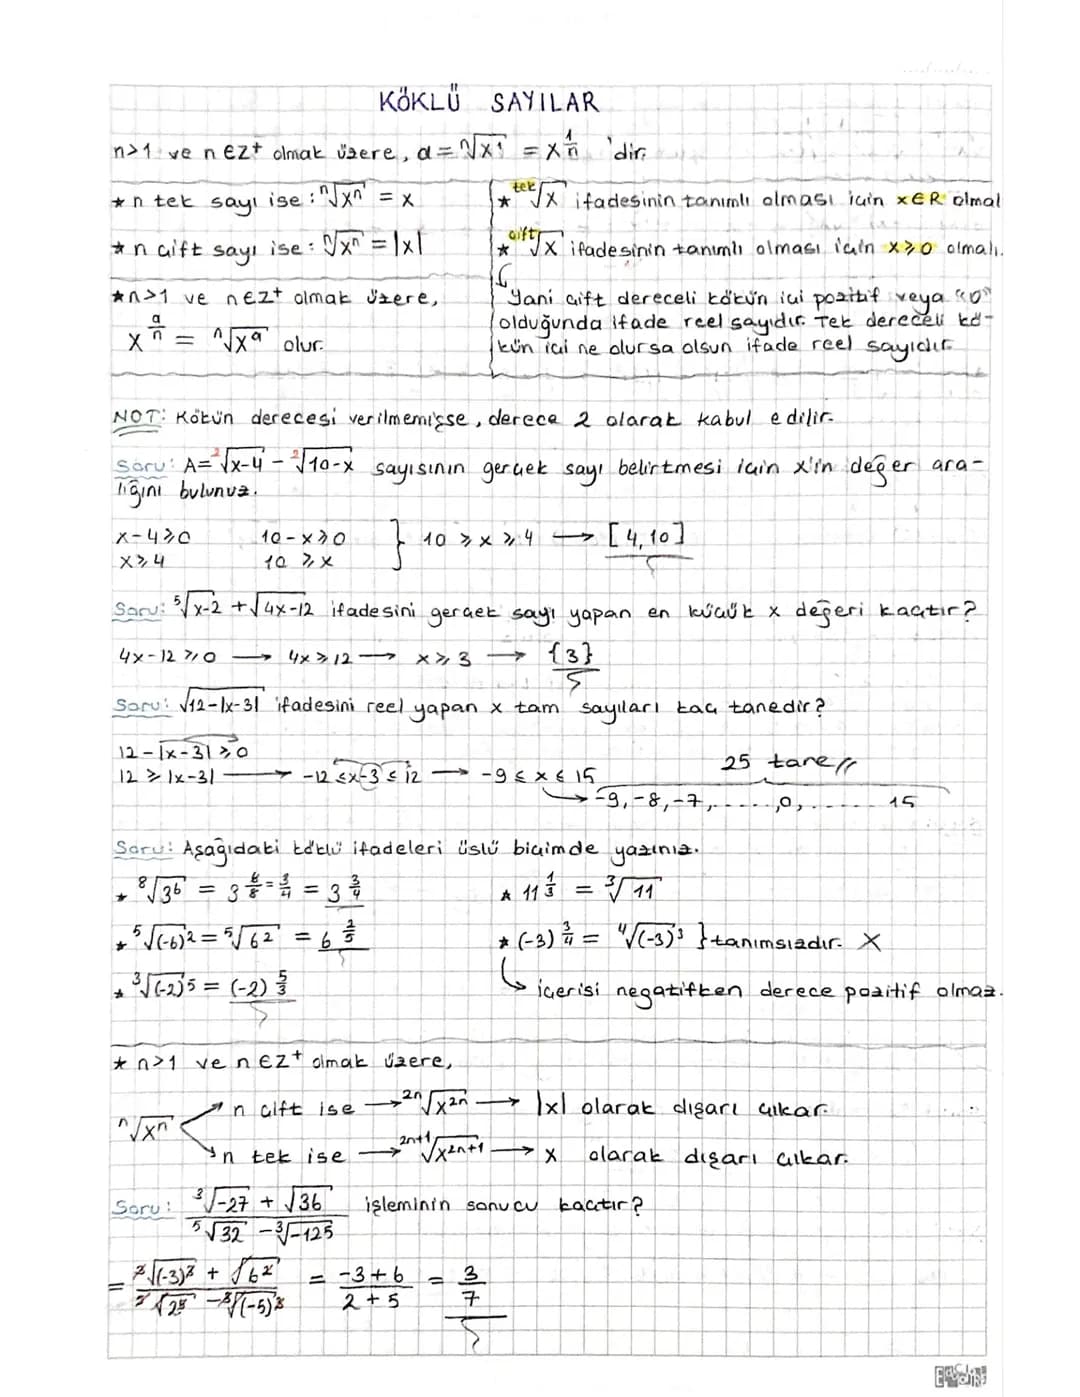 KÖKLÜ SAYILAR
n>1 ve n∈Z⁺ olmak üzere, a = ⁿ√x¹ = x^(1/n) 'dir.
★ n tek sayı ise : ⁿ√xⁿ = x
★ n çift sayı ise : ⁿ√xⁿ = |x|
★ n>1 ve n∈Z⁺ olmak üzere,
x^(a/n) = ⁿ√xᵃ olur.
★ tek√x ifadesinin tanımlı olması için x∈R olmal
★ çift√x ifadesinin tanımlı olması için x⩾0 olmalı.
Yani çift dereceli kökün içi pozitif veya "0"
olduğunda ifade reel sayıdır. Tek dereceli kö-
kün içi ne olursa olsun ifade reel sayıdır.
NOT: Kökün derecesi verilmemişse, derece 2 olarak kabul edilir.
Soru: A= ²√x-4 - ²√10-x sayısının gerçek sayı belirtmesi için x'in değer ara-
lığını bulunuz.
x-4⩾0 10-x⩾0 } 10 ⩾ x ⩾ 4 → [4,10]
x⩾4 10 ⩾ x
Soru: ⁵√x-2 + √4x-12 ifadesini gerçek sayı yapan en küçük x değeri kaçtır?
4x-12 ⩾0 → 4x⩾12 → x⩾3 → {3}
Soru: √12-|x-3| ifadesini reel yapan x tam sayıları kaç tanedir?
12-|x-3|⩾0
12 ⩾ |x-3| → -12 ⩽x-3⩽ 12 → -9 ⩽ x ⩽ 15
25 tane
→ -9,-8,-7,.....,0,...... 15
Soru: Aşağıdaki köklü ifadeleri üslü biçimde yazınız.
★ ⁸√3⁶ = 3^(6/8=3/4) = 3^(3/4)
★ 11^(1/3) = ³√11
★ ⁵√(-6)² = ⁵√6² = 6^(2/5)
★ (-3)^(3/4) = ⁴√(-3)³ } tanımsızdır. X
★ ³√(-2)⁵ = (-2)^(5/3)
↳ içerisi negatifken derece pozitif olmaz.
★ n>1 ve n∈Z⁺ olmak üzere,
ⁿ√xⁿ
n çift ise → ²ⁿ√x²ⁿ → |x| olarak dışarı çıkar.
n tek ise → ²ⁿ⁺¹√x²ⁿ⁺¹ → x olarak dışarı çıkar.
Soru: (³√-27 + √36) / (⁵√32 - ³√-125) işleminin sonucu kaçtır?
= (³√(-3)³ + √6²) / (⁵√2⁵ - ³√(-5)³) = (-3+6) / (2+5) = 3/7